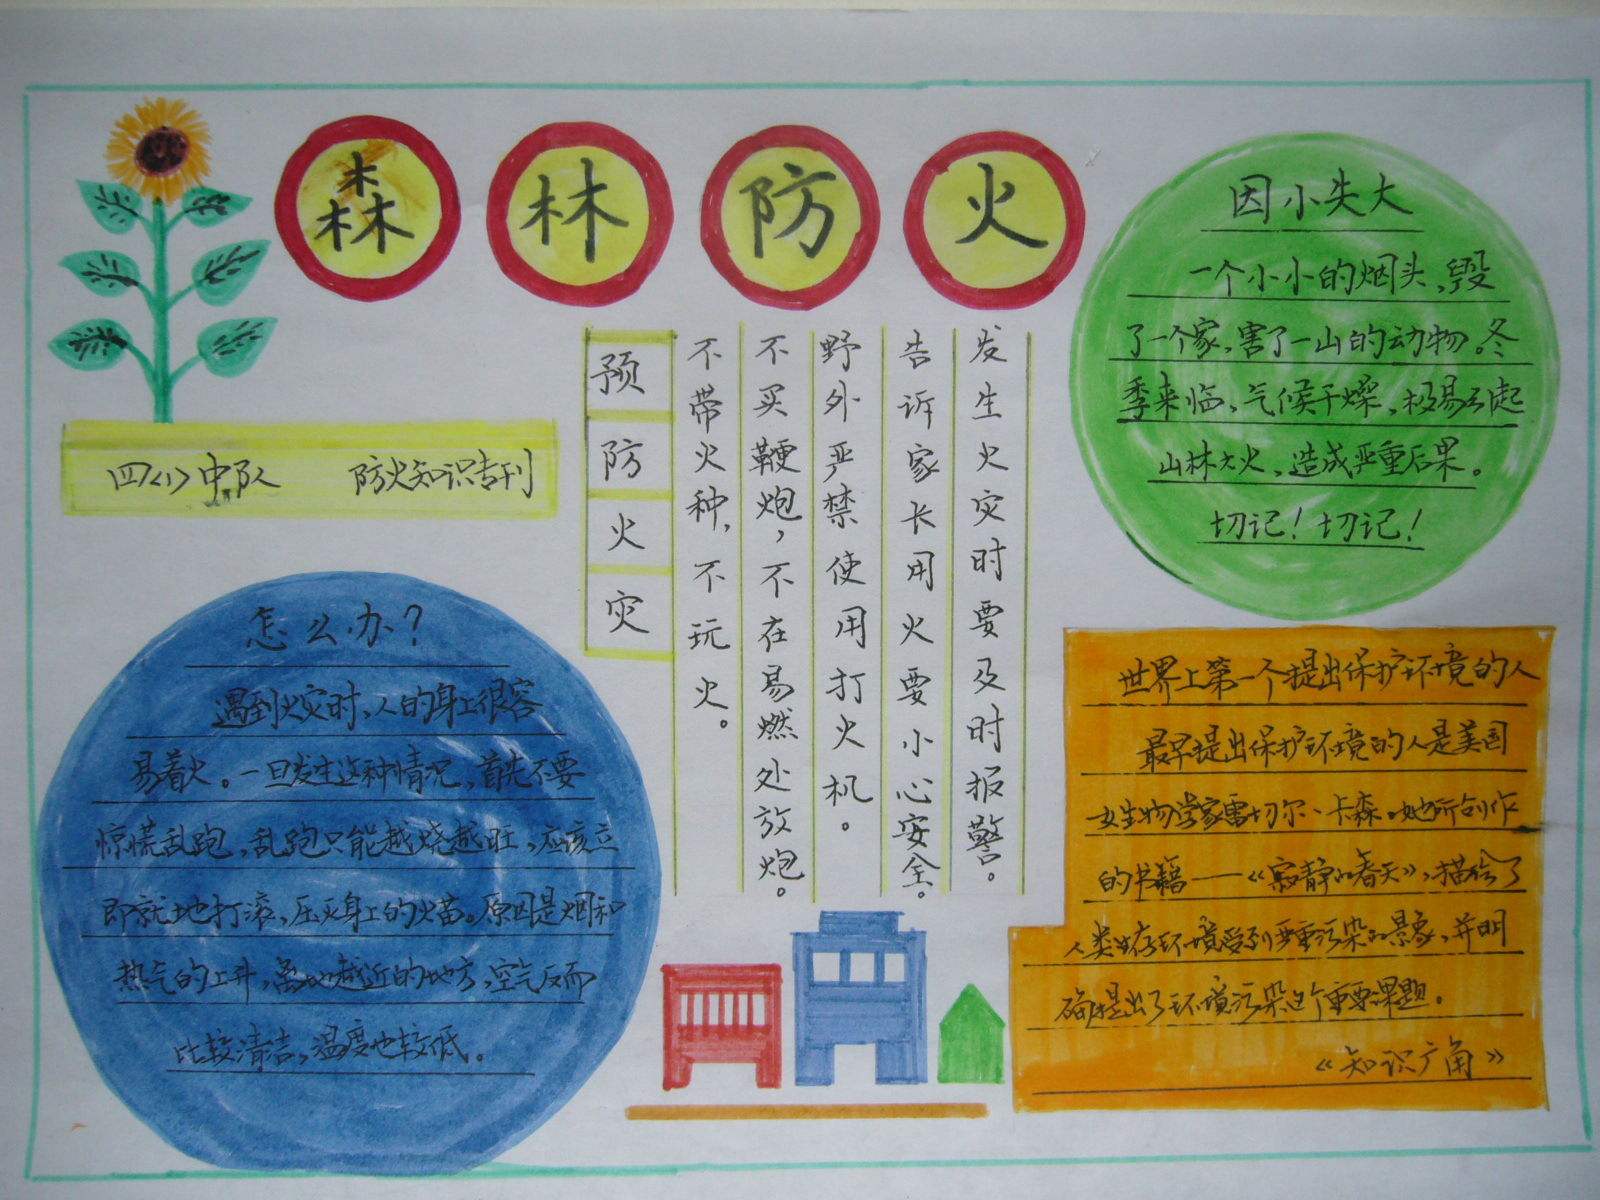 森林防火
四(1)中队 防火知识专刊
预防火灾
不带火种，不玩火。
不买鞭炮，不在易燃处放炮。
野外严禁使用打火机。
告诉家长用火要小心安全。
发生火灾时要及时报警。
因小失大
一个小小的烟头，毁
了一个家，害了一山的动物。冬
季来临，气候干燥，极易引起
山林大火，造成严重后果。
切记！切记！
怎么办？
遇到火灾时，人的身上很容
易着火。一旦发生这种情况，首先不要
惊慌乱跑，乱跑只能越烧越旺，应该立
即就地打滚，压灭身上的火苗。原因是烟和
热气的上升，离地越近的地方，空气反而
比较清洁，温度也较低。
世界上第一个提出保护环境的人
最早提出保护环境的人是美国
女生物学家雷切尔、卡森。她所创作
的书籍——《寂静的春天》，描绘了
人类生存环境受到严重污染的景象，并明
确提出了环境污染这个重要课题。
《知识广角》